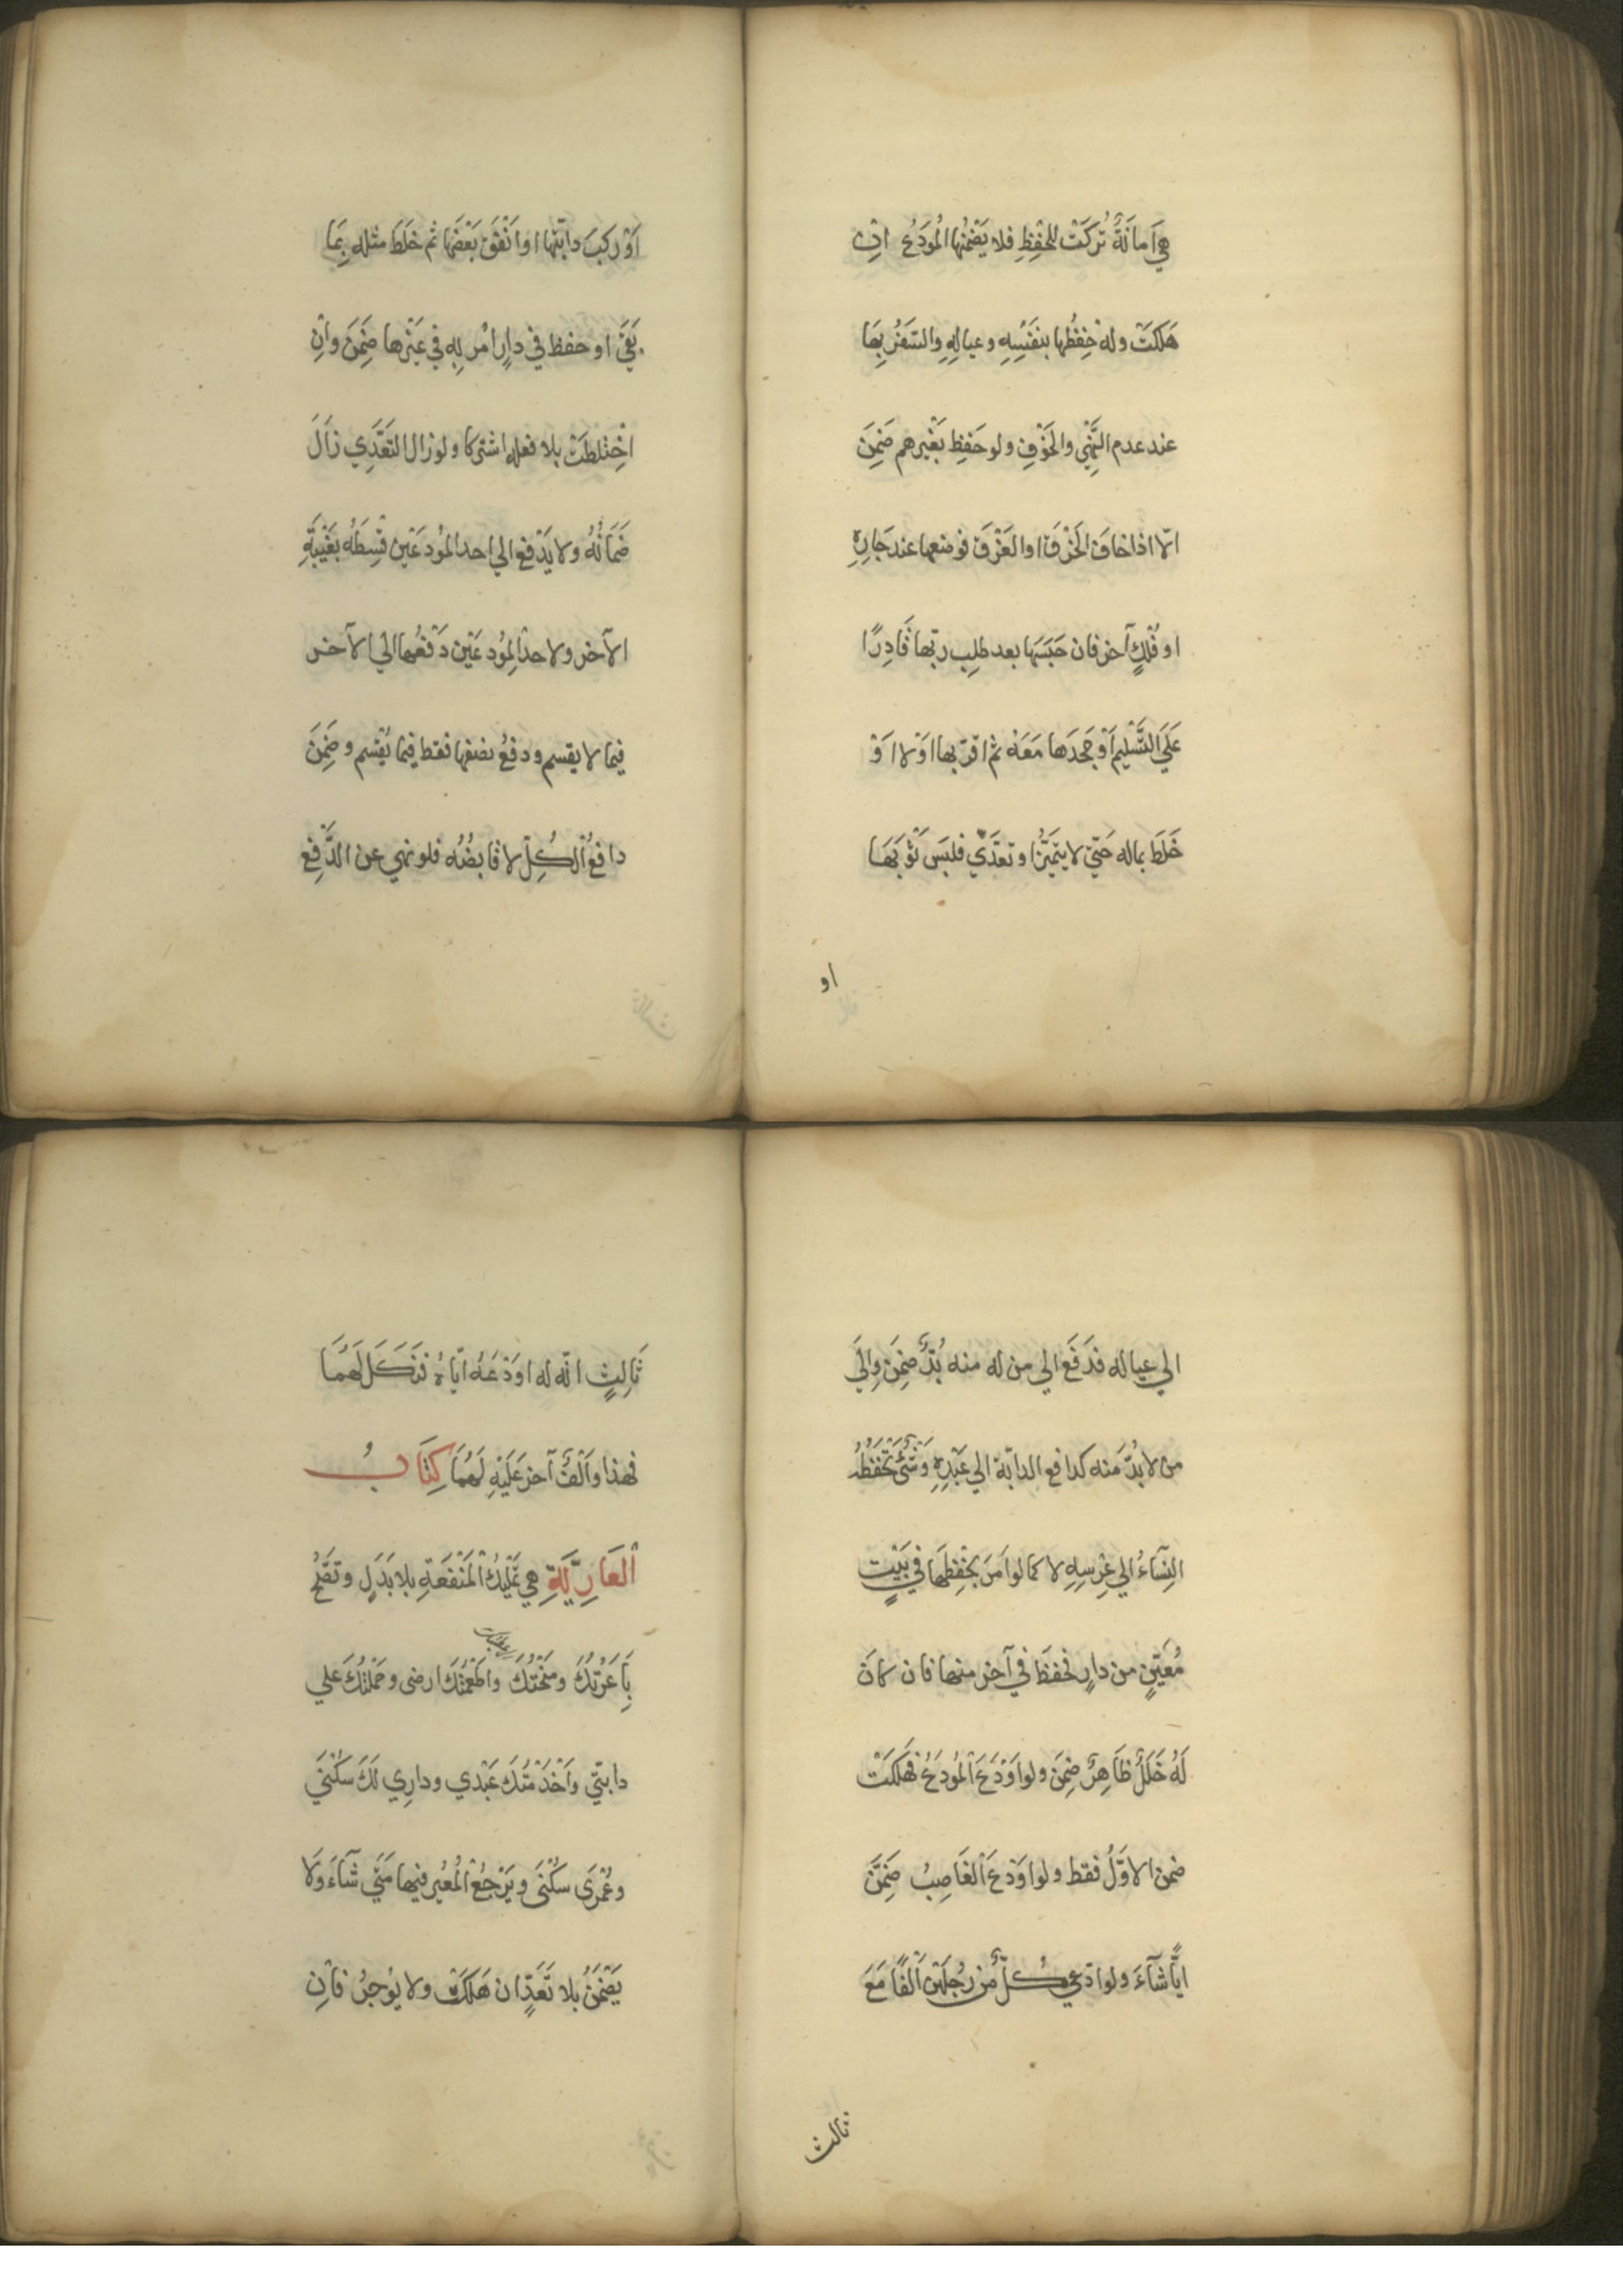 هِيَ اَمانَةٌ تُرِكَتْ لِلحِفْظِ فلا يَضْمَنُها المُودَعُ اِنْ
هَلَكَتْ وله حِفْظُها بِنَفْسِهِ وعيالِهِ والسَّفَرُ بِهَا
عند عدم النَّهْيِ والخَوْفِ ولو حَفِظَ بِغَيْرِهِم ضَمِنَ
الّا اذا خافَ الحَرْقَ او الغَرْقَ فوضعها عند جَارِهِ
او فُلْكٍ آخر فان حَبَسَها بعد طلبِ ربّها قَادِرًا
عَلَى التَّسْلِيمِ اَوْ جَحَدَها مَعَهُ ثم اقرّ بها اَوْ لا اَوْ
خَلَطَ بماله حَتّي لا يتَمَيَّزُ او تعدَّي فلَبِسَ ثَوْبَهَا
او
اَوْ رَكِبَ دابّتها او اَنْفَقَ بَعْضَها ثم خَلَطَ مثله بِمَا
بَقِيَ او حفظ في دارٍ اَمَر بِهِ في غَيْرِها ضَمِنَ واِنِ
اخْتَلَطَتْ بلا فعله اشتركا ولو زال التَّعَدِّي زَالَ
ضَمَانُهُ ولا يَدْفع الي احد المُودِعَيْنِ قِسْطَهُ بِغَيْبَةِ
الآخر ولاحد المُودَعَيْنِ دَفْعُها الي الآخر
فيما لا يقسم ودفعُ نصفها فقط فيما يُقْسم وضَمِنَ
دافعُ الكُلِّ لا قابضُه فلو نهي عن الدَّفْعِ
الي عياله فدَفَعَ الي من له منه بُدٌّ ضَمِنَ واِلَي
من لا بُدّ مَنه كدافع الدابّة الي عَبْدِهِ وَشَيْءٍ تَحْفَظُهُ
النِّسَاءُ الي عِرْسِهِ لا كما لو اَمَرَ بحِفْظِهَا في بَيْتٍ
مُعَيَّنٍ من دارٍ فحفظَ في آخر منها فان كانَ
لَهُ خَلَلٌ ظَاهِرٌ ضَمِنَ ولو اَوْدَعَ المُودَعُ فَهَلَكَتْ
ضمن الاوَّلُ فقط ولو اَوْدَعَ الغَاصِبُ ضَمَّنَ
ايًّا شآءَ ولو ادّعي كُلٌّ مِن رَجُلَيْنِ اَلْفًا مَعَ
ثالث
ثَالِثٍ انّه له اَوْدَعَهُ ايّاهُ فنَكَلَ لَهُمَا
فهذا واَلْفٌ آخر عَلَيْهِ لَهُمَا كِتَابُ
العَارِيَّةِ هي تَمْلِيكُ المَنْفَعَةِ بلا بَدَلٍ وتَصِحُّ
بِاَعَرْتُكَ ومَنَحْتُكَ واَطْعَمْتُكَ ارضي وحَمَلْتُكَ علي
دابّتي واَخْدَمْتُكَ عَبْدي ودارِي لَكَ سُكْنَي
وعُمْرَى سُكْنَى ويَرْجِعُ المُعِيرُ فيها مَتَي شآءَ وَلَا
يَضْمَنُ بلا تَعَدٍّ ان هَلَكَتْ ولا يُوْجِرُ فاِن